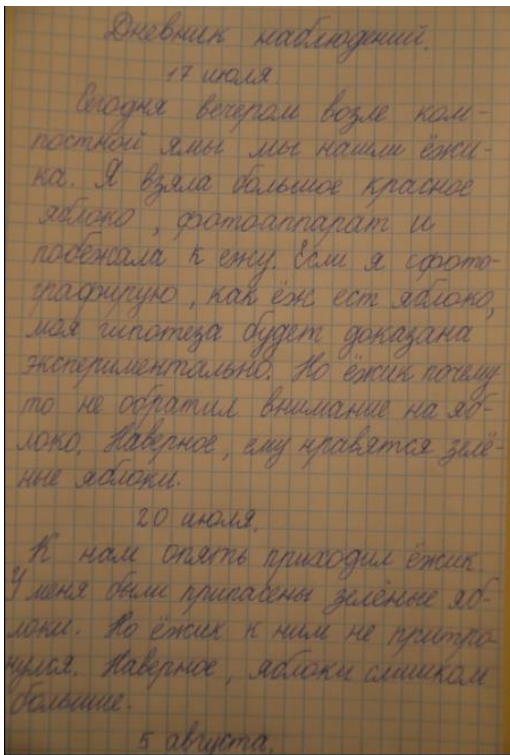 Дневник наблюдений.
17 июля
Сегодня вечером возле ком-
постной ямы мы нашли ёжи-
ка. Я взяла большое красное
яблоко, фотоаппарат и
побежала к ежу. Если я сфото-
графирую, как ёж ест яблоко,
моя гипотеза будет доказана
экспериментально. Но ёжик почему
то не обратил внимание на яб-
локо. Наверное, ему нравятся зелё-
ные яблоки.
20 июля.
К нам опять приходил ёжик.
У меня были припасены зелёные яб-
локи. Но ёжик к ним не притро-
нулся. Наверное, яблоки слишком
большие.
5 августа.